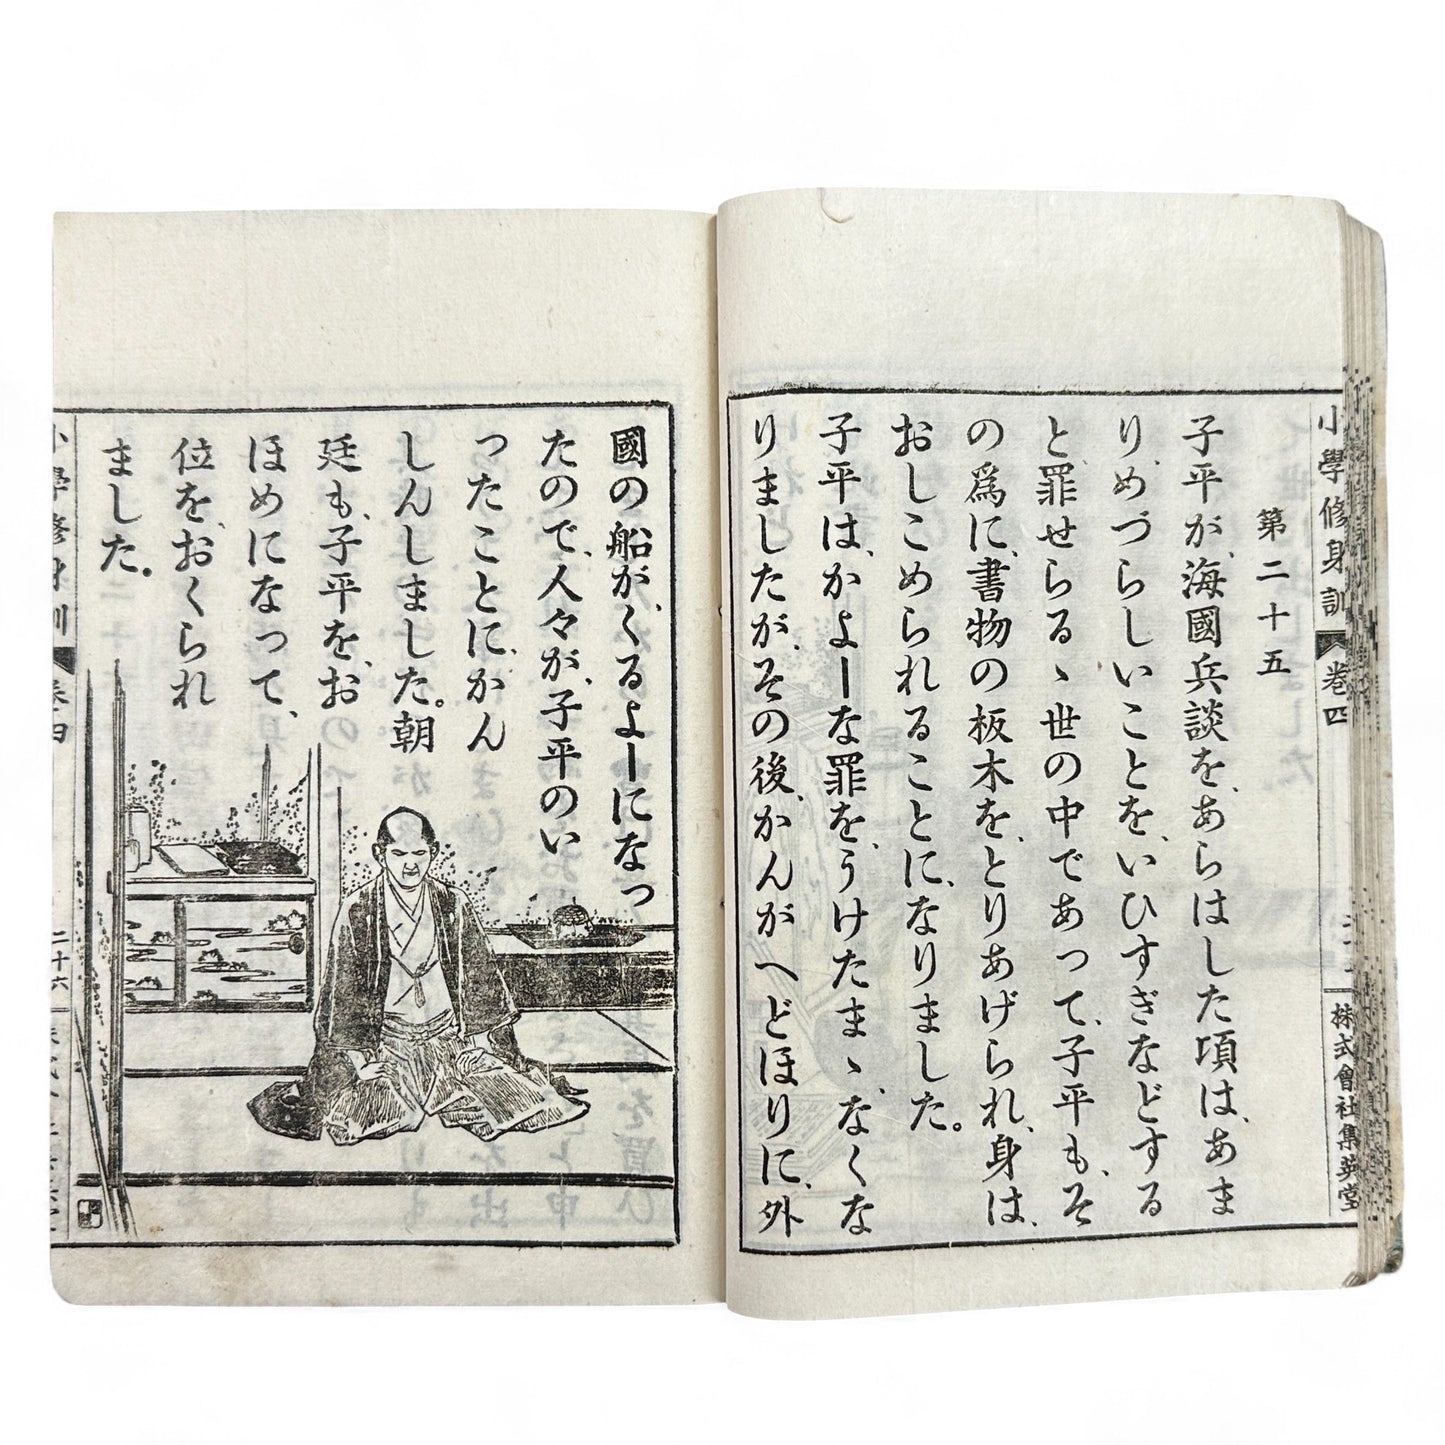 小學修身訓 卷四 株式會社集英堂
第二十五
子平が、海國兵談を、あらはした頃は、あま
り、めづらしいことを、いひすぎなどする
と、罪せらるゝ世の中であって、子平も、そ
の爲に、書物の板木を、とりあげられ、身は、
おしこめられることに、なりました。
子平は、かよーな罪を、うけたまゝ、なくな
りましたが、その後、かんがへどほりに、外
國の船が、くるよーになっ
たので、人々が、子平のい
ったことに、かん
しんしました。朝
廷も、子平を、お
ほめになって、
位を、おくられ
ました。
小學修身訓 卷四 二十六